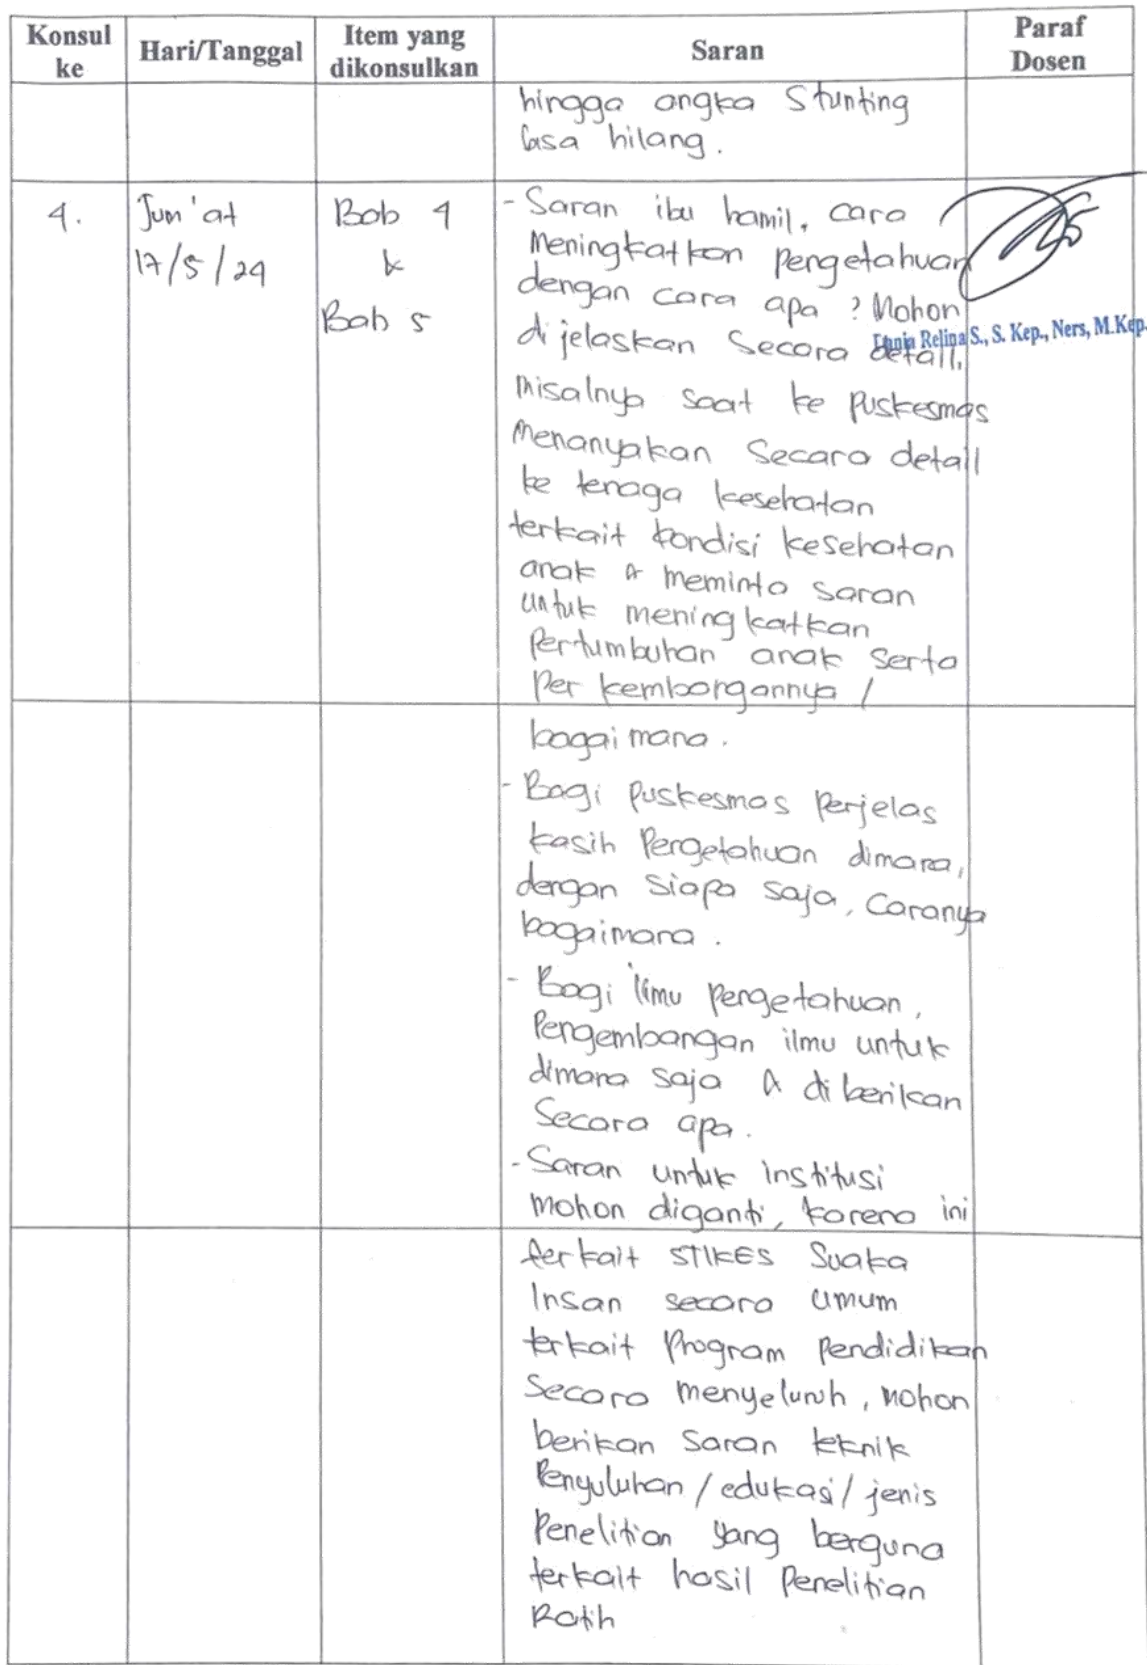 Konsul ke | Hari/Tanggal | Item yang dikonsulkan | Saran | Paraf Dosen
hingga angka Stunting
bisa hilang.
4. | Jum'at | Bab 4 | - Saran ibu hamil, cara
17/5/24 | & | Meningkatkan pengetahuan
dengan cara apa ? Mohon
Bab 5 | dijelaskan Secara detail,
Relina S., S. Kep., Ners, M.Kep.
misalnya saat ke puskesmas
Menanyakan Secara detail
ke tenaga kesehatan
terkait kondisi kesehatan
anak & meminta saran
untuk meningkatkan
Pertumbuhan anak serta
Perkembangannya /
bagaimana.
- Bagi puskesmas Perjelas
kasih Pengetahuan dimana,
dengan siapa saja, Caranya
bagaimana.
- Bagi ilmu pengetahuan,
Pengembangan ilmu untuk
dimana saja & diberikan
Secara apa.
- Saran untuk institusi
mohon diganti, karena ini
terkait STIKES Suaka
Insan secara umum
terkait Program Pendidikan
Secara menyeluruh, mohon
berikan saran teknik
Penyuluhan / edukasi / jenis
Penelitian yang berguna
terkait hasil Penelitian
Ratih